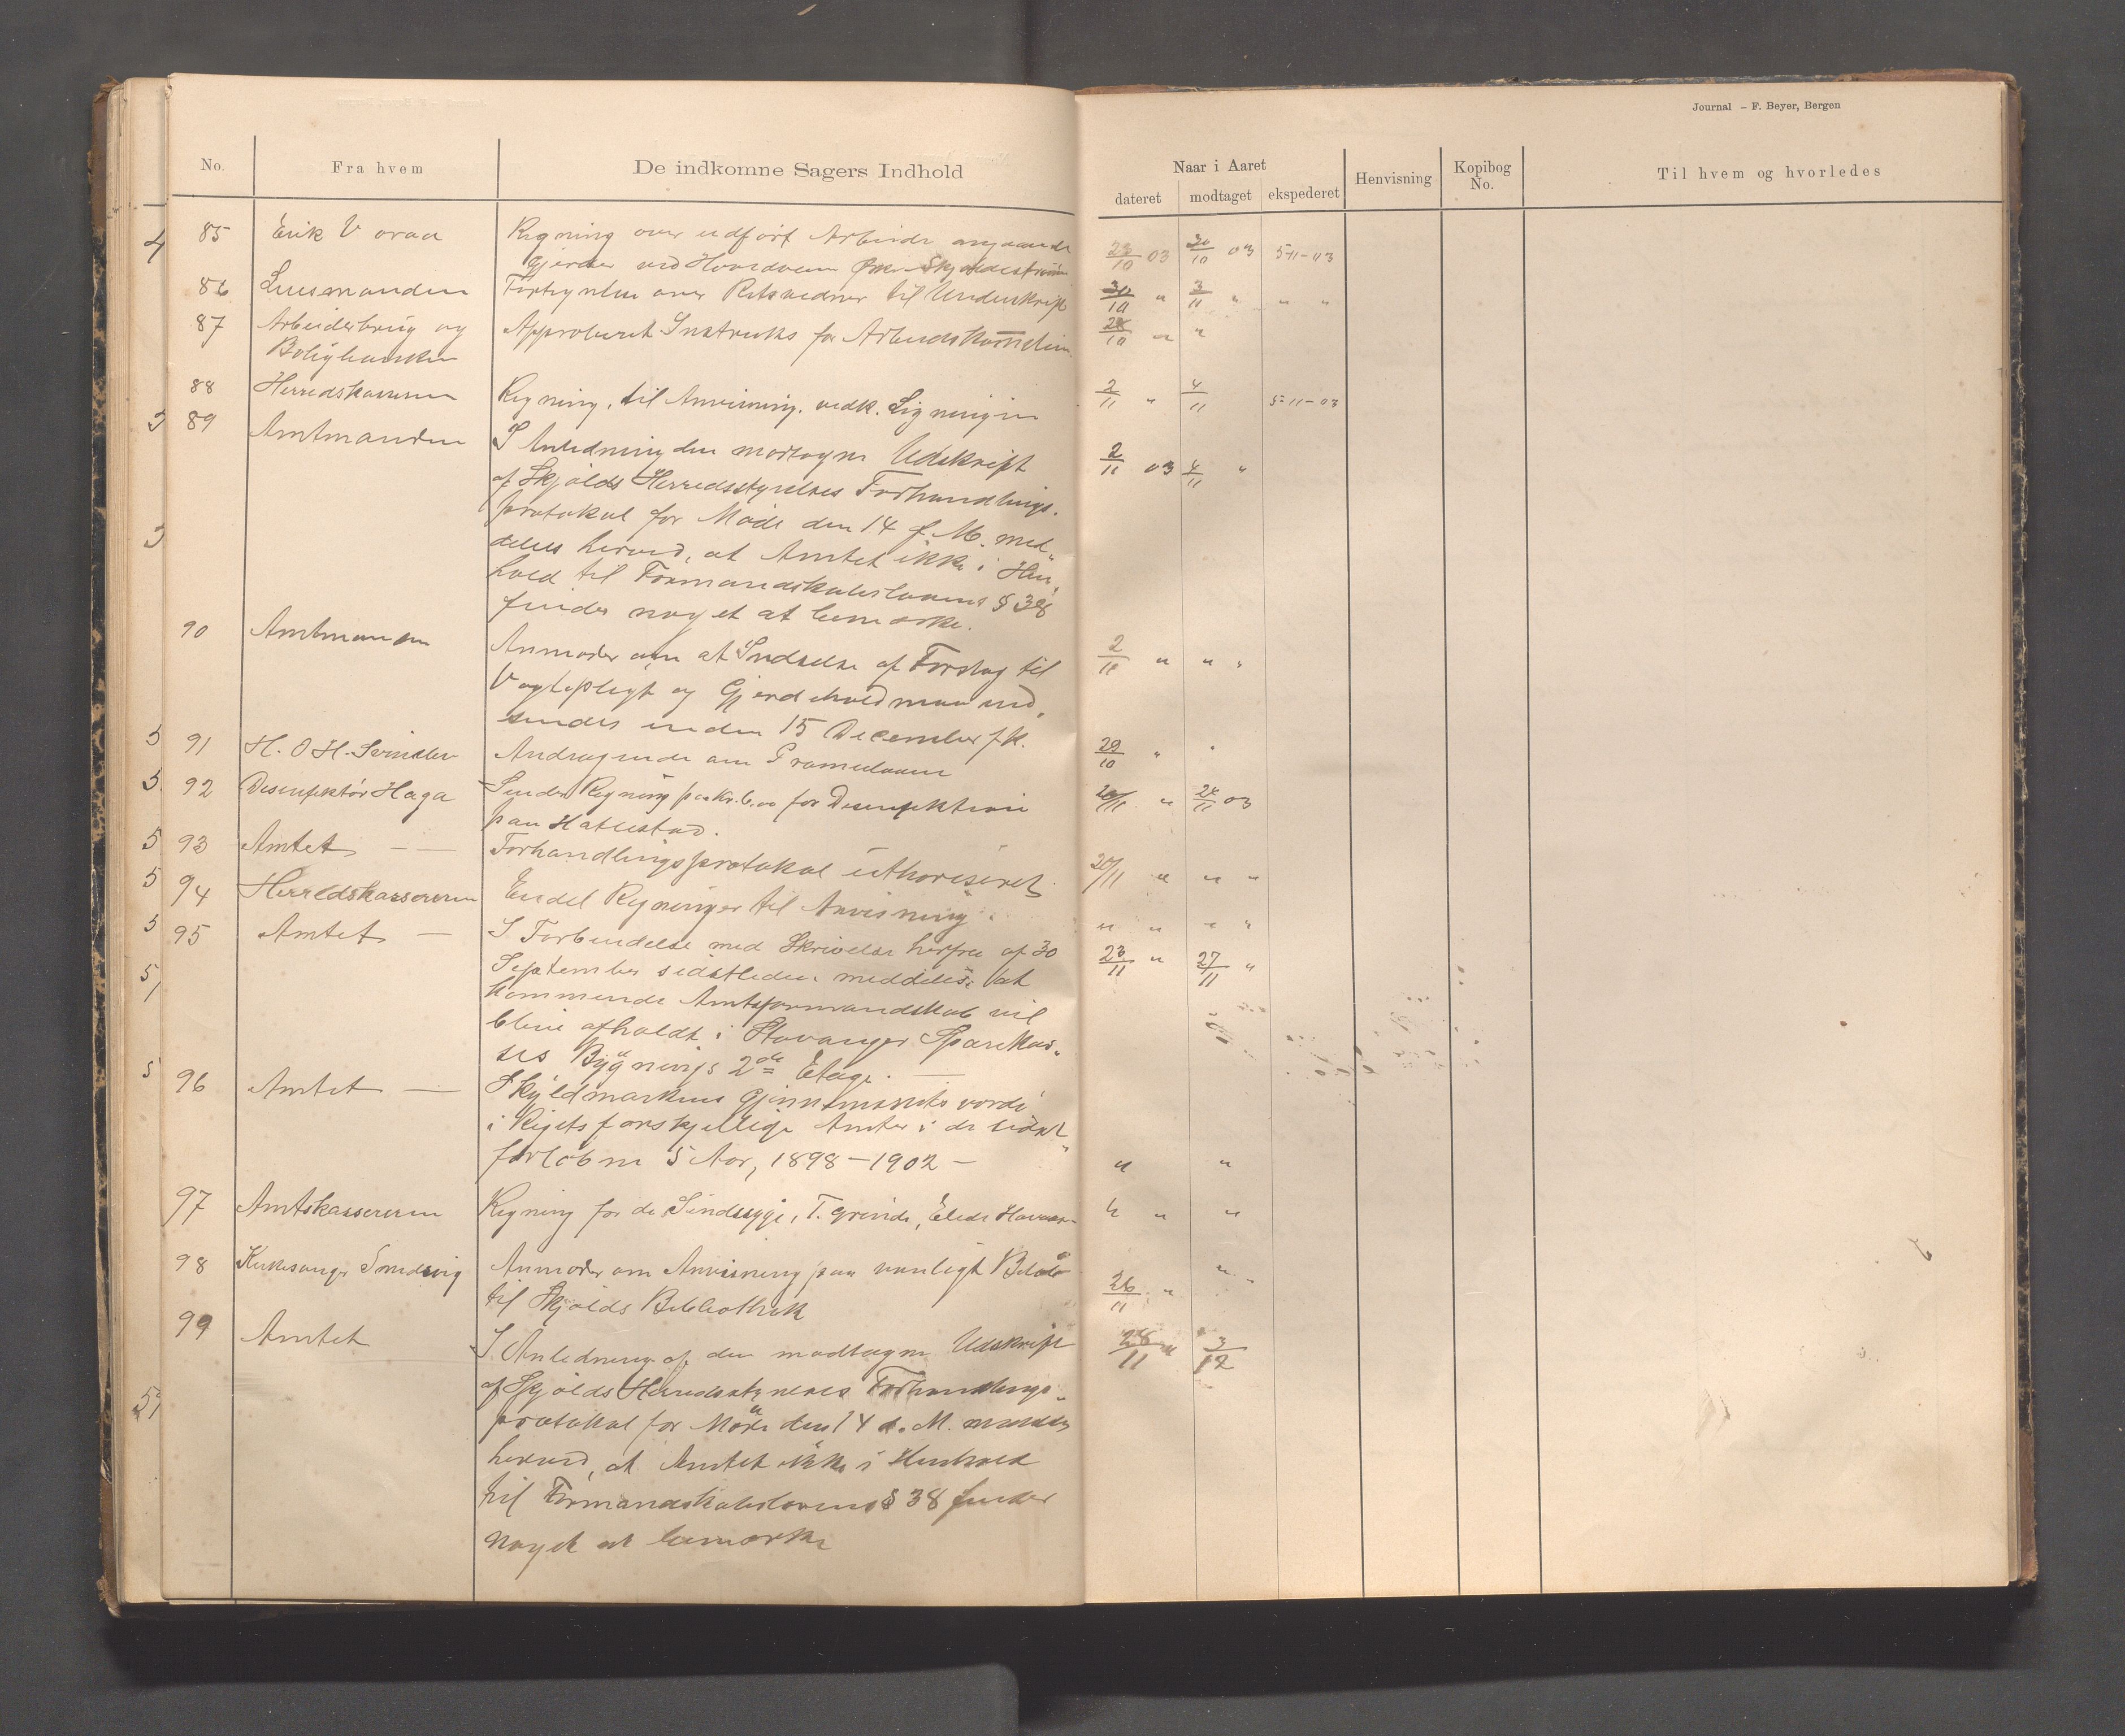 Journal – F. Beyer, Bergen
No. Fra hvem De indkomne Sagers Indhold
Naar i Aaret
dateret modtaget ekspederet Henvisning Kopibog No. Til hvem og hvorledes
85 Erik Voraa Regning over udført Arbeide angaaende 23/10 03 30/10 03 5-11-03
Gjerder ved Hovedveien
86 Lensmanden Fortegnelse over til Underskrift 30/10 " 3/11 " " "
87 Arbeiderbrug og Approberet Instruks for 28/10 " "
Boligbanken
88 Herredskassereren Regning til Anvisning vedk. Ligningen 2/11 " 4/11 5-11-03
89 Amtmanden I Anledning den modtagne Udskrift 2/11 03 4/11 "
af Skjolds Herredsstyrelses Forhandlings-
protokol for Møde den 14 f. M. med-
deles herved, at Amtet ikke i Hen-
hold til Formandskabslovens § 38
finder noget at bemærke.
90 Amtmanden Anmoder om at Indselse af Forslag til 2/11 " " "
Vogtepligt og Gjerdehold maa ind-
sendes inden 15 December f k.
91 H. O H. Svindler Andragende om 29/10 " "
92 Desinfektør Haga Sender Regning paa Kr. 6.00 for Desinfektion " 24/11 03
paa Hatlestad.
93 Amtet — — Forhandlingsprotokol authoriseret. 20/11 " " "
94 Herredskassereren Endel Regninger til Anvisning. " " " "
95 Amtet — I Forbindelse med Skrivelse herfra af 30 23/11 " 27/11 "
September sidstleden meddeles at
kommende Amtsformandskab vil
blive afholdt i Stavanger Sparekas-
ses Bygnings 2de Etage. —
96 Amtet — Skyldmarkens Gjennemsnitsværdi
i Rigets forskjellige Amter i de sidst
forløbne 5 Aar, 1898–1902 — " "
97 Amtskassereren Regning for de Sindssyge, T. Grinde, " " "
98 Kirkesanger Smedsvig Anmoder om Anvisning paa vanligt Beløb 26/11 " " "
til Skjolds Bibliothek
99 Amtet I Anledning af den modtagne Udskrift 28/11 " 3/12
af Skjolds Herredsstyrelses Forhandlings-
protokol for Møde den 14 d. M. meddeles
herved, at Amtet ikke i Henhold
til Formandskabslovens § 38 finder
noget at bemærke